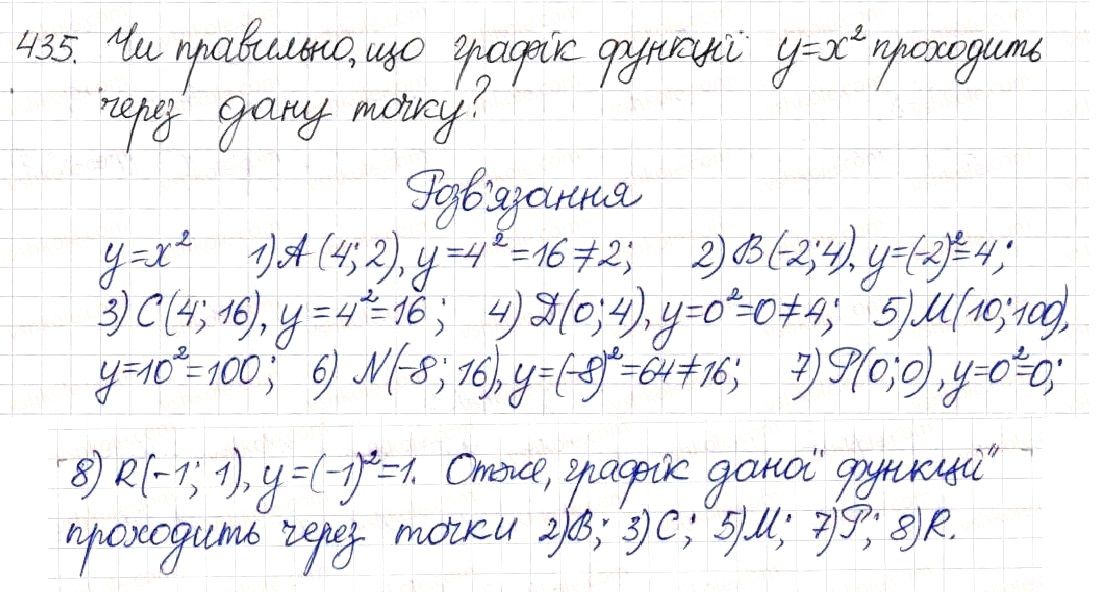 435. Чи правильно, що графік функції y=x² проходить
через дану точку?
Розв'язання
y=x² 1) A(4; 2), y=4²=16≠2; 2) B(-2; 4), y=(-2)²=4;
3) C(4; 16), y=4²=16; 4) D(0; 4), y=0²=0≠4; 5) M(10; 100),
y=10²=100; 6) N(-8; 16), y=(-8)²=64≠16; 7) P(0; 0), y=0²=0;
8) R(-1; 1), y=(-1)²=1. Отже, графік даної функції
проходить через точки 2)B; 3)C; 5)M; 7)P; 8)R.